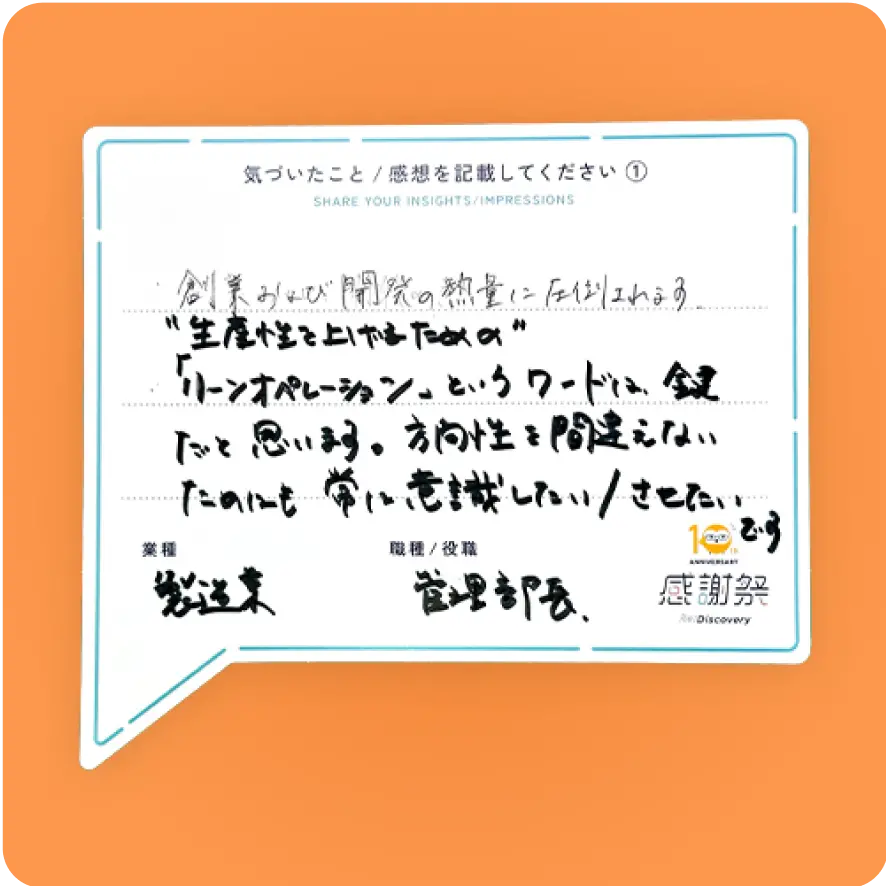 気づいたこと / 感想を記載してください ①
SHARE YOUR INSIGHTS/IMPRESSIONS
創業および開発の熱量に圧倒されます。
"生産性を上げるための"
「リーンオペレーション」というワードは、鍵
だと思います。方向性を間違えない
ためにも 常に意識したい/させたい
です
業種
製造業
職種 / 役職
管理部長、
10th
ANNIVERSARY
感謝祭
Re:Discovery